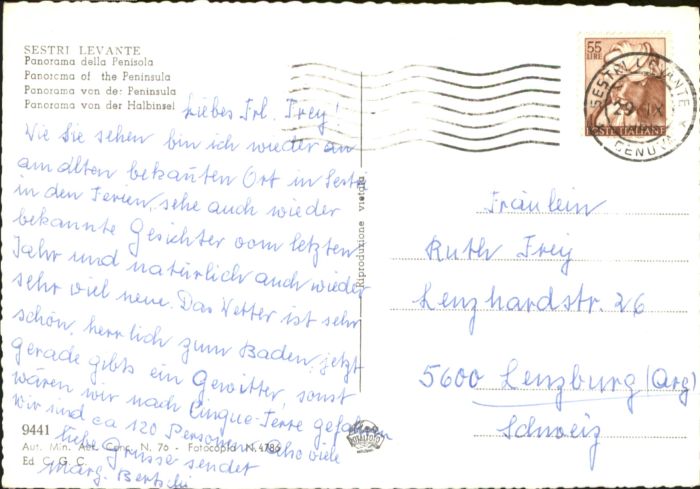 SESTRI LEVANTE
Panorama della Penisola
Panorama of the Peninsula
Panorama von der Peninsula
Panorama von der Halbinsel
Liebes Frl. Frey!
Wie Sie sehen bin ich wieder an
am alten bekannten Ort in Sestri
in den Ferien, sehe auch wieder
bekannte Gesichter vom letzten
Jahr und natürlich auch wieder
sehr viel neue. Das Wetter ist sehr
schön, herrlich zum Baden, jetzt
gerade gibts ein Gewitter, sonst
wären wir nach Cinque-Terre gefahren
Wir sind ca 120 Personen, also viele
liebe Grüsse sendet
Marg. Bertschi
9441
Aut. Min. Conc. N. 76 - Fotocopia N. 4786
Ed C. G. C.
Riproduzione vietata
55
LIRE
POSTE ITALIANE
SESTRI LEVANTE
29 IX
GENOVA
Fräulein
Ruth Frey
Lenzhardstr. 26
5600 Lenzburg (Arg)
Schweiz